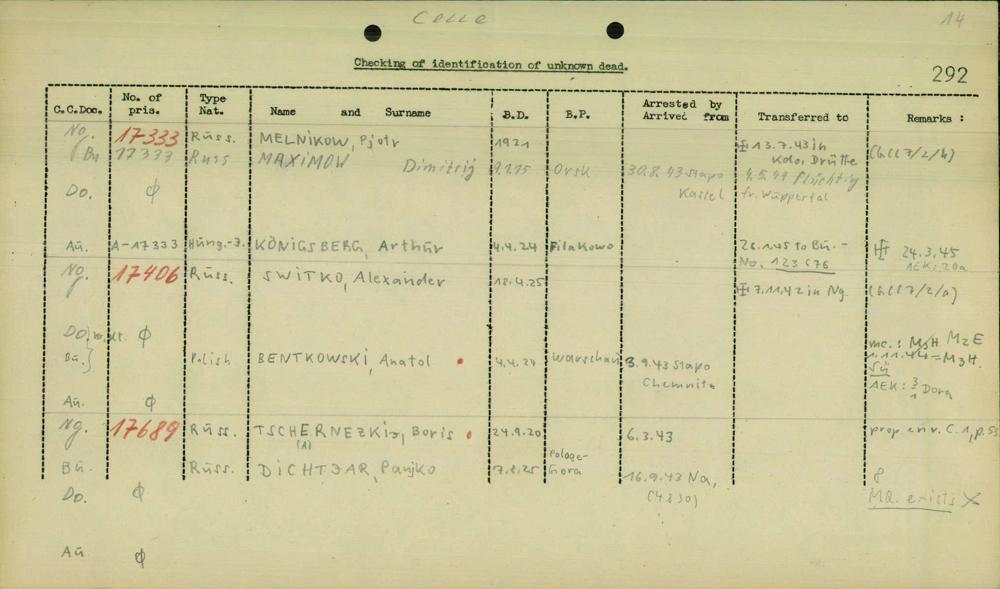 Celle
14
Checking of identification of unknown dead.
292
C.C.Doc. No. of pris. Type Nat. Name and Surname B.D. B.P. Arrested by Arrived from Transferred to Remarks :
Ng. 17333 Russ. MELNIKOW, Pjotr 1921 ✠ 13.7.43 in Kdo. Drütte (GCC 7/2/h)
Bu 17333 Russ MAXIMOW Dimitrij Orsk 30.8.43 Stapo Kassel 4.5.44 flüchtig fr. Wuppertal
Do. ϕ
Au. A-17333 Hung.-J. KÖNIGSBERG, Arthur 4.4.24 Filakowo 26.1.45 to Bu.- No. 123676 ✠ 24.3.45
Ng. 17406 Russ. SWITKO, Alexander 18.4.25 ✠ 7.11.42 in Ng. (GCC 7/2/a)
Do. ϕ
Bu. Polish BENTKOWSKI, Anatol 4.4.24 Warschau 3.9.43 Stapo Chemnitz
1.11.44 = M3H.
AEK: 3/1 Dora
Au. ϕ
Ng. 17689 Russ. TSCHERNEZKIJ, Boris 24.9.20 6.3.43 prop. env. C. 1, p. 55
(A)
Bu. Russ. DICHTJAR, Panjko 7.8.25 Pologe-Gora 16.9.43 Na, (4830) 8
Do. ϕ MQ. exists X
Au ϕ